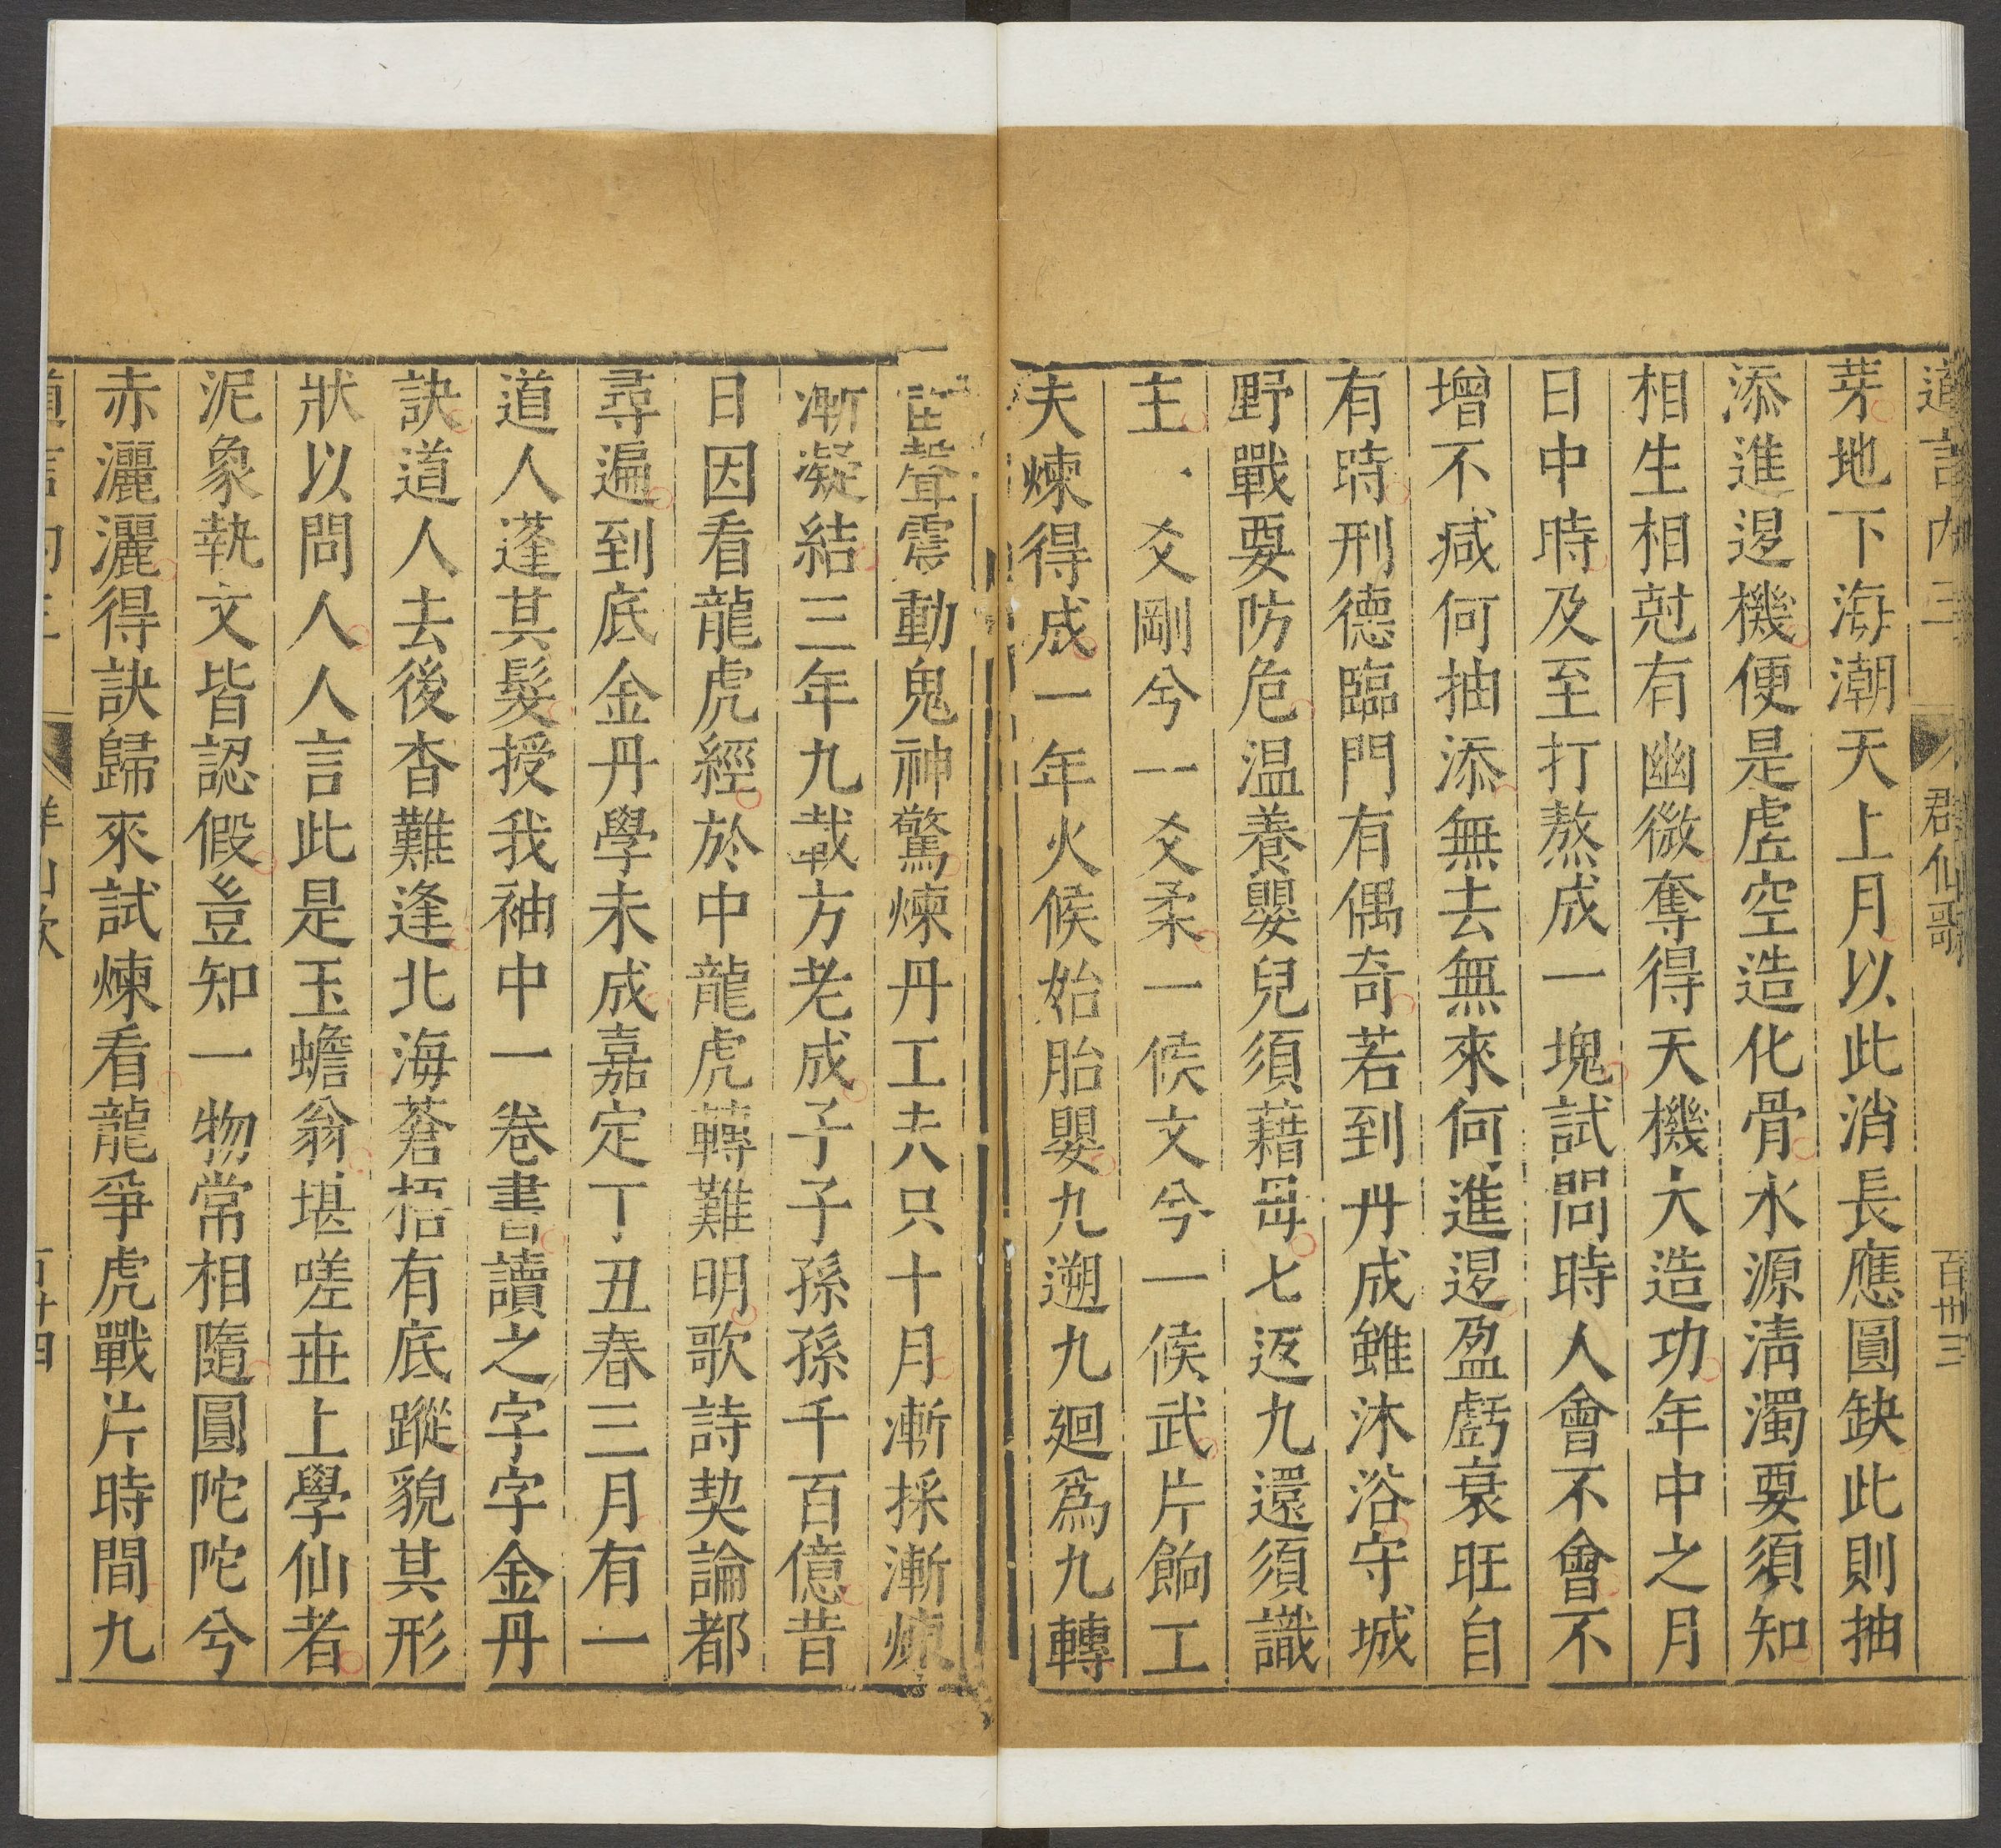 道言内三 群仙歌 百卅三
芽地下海潮天上月以此消長應圓缺此則抽
添進退機便是虛空造化骨水源淸濁要須知
相生相尅有幽微奪得天機大造功年中之月
日中時及至打熬成一塊試問時人會不會不
增不減何抽添無去無來何進退盈虧衰旺自
有時刑德臨門有偶奇若到丹成雖沐浴守城
野戰要防危温養嬰兒須藉母七返九還須識
主爻剛兮一爻柔一候文兮一候武片餉工
夫煉得成一年火候始胎嬰九遡九廻爲九轉
聲震動鬼神驚煉丹工夫只十月漸採漸煉
漸凝結三年九載方老成子子孫孫千百億昔
日因看龍虎經於中龍虎轉難明歌詩契論都
尋遍到底金丹學未成嘉定丁丑春三月有一
道人蓬其髮授我袖中一卷書讀之字字金丹
訣道人去後杳難逢北海蒼梧有底蹤貌其形
狀以問人人言此是玉蟾翁堪嗟世上學仙者
泥象執文皆認假豈知一物常相隨圓陀陀兮
赤灑灑得訣歸來試煉看龍爭虎戰片時間九